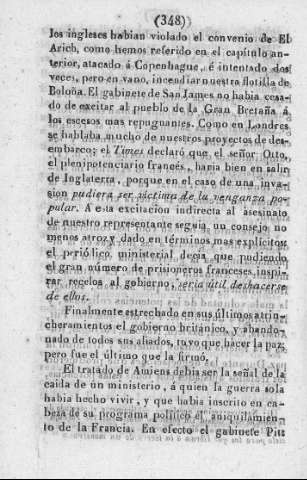 (348)
los ingleses habian violado el convenio de El
Arich, como hemos referido en el capítulo an-
terior, atacado á Copenhague, é intentado dos
veces, pero en vano, incendiar nuestra flotilla de
Boloña. El gabinete de San James no habia cesa-
do de excitar al pueblo de la Gran Bretaña á
los escesos mas repugnantes. Como en Londres
se hablaba mucho de nuestros proyectos de des-
embarco; el Times declaró que el señor Otto,
el plenipotenciario francés, haria bien en salir
de Inglaterra, porque en el caso de una inva-
sion pudiera ser víctima de la venganza po-
pular. A esta excitacion indirecta al asesinato
de nuestro representante seguia un consejo no
menos atroz y dado en términos mas explícitos,
el prriólico ministerial decia que pudiendo
el gran número de prisioneros franceses inspi-
rar recelos al gobierno, seria útil deshacerse
de ellos.
Finalmente estrechado en sus últimos atrin-
cheramientos el gobierno británico, y abando-
nado de todos sus aliados, tuvo que hacer la paz,
pero fue el último que la firmó.
El tratado de Amiens debia ser la señal de la
caida de un ministerio, á quien la guerra sola
habia hecho vivir, y que habia inscrito en ca-
beza de su programa político el aniquilamien-
to de la Francia. En efecto el gabinete Pitt